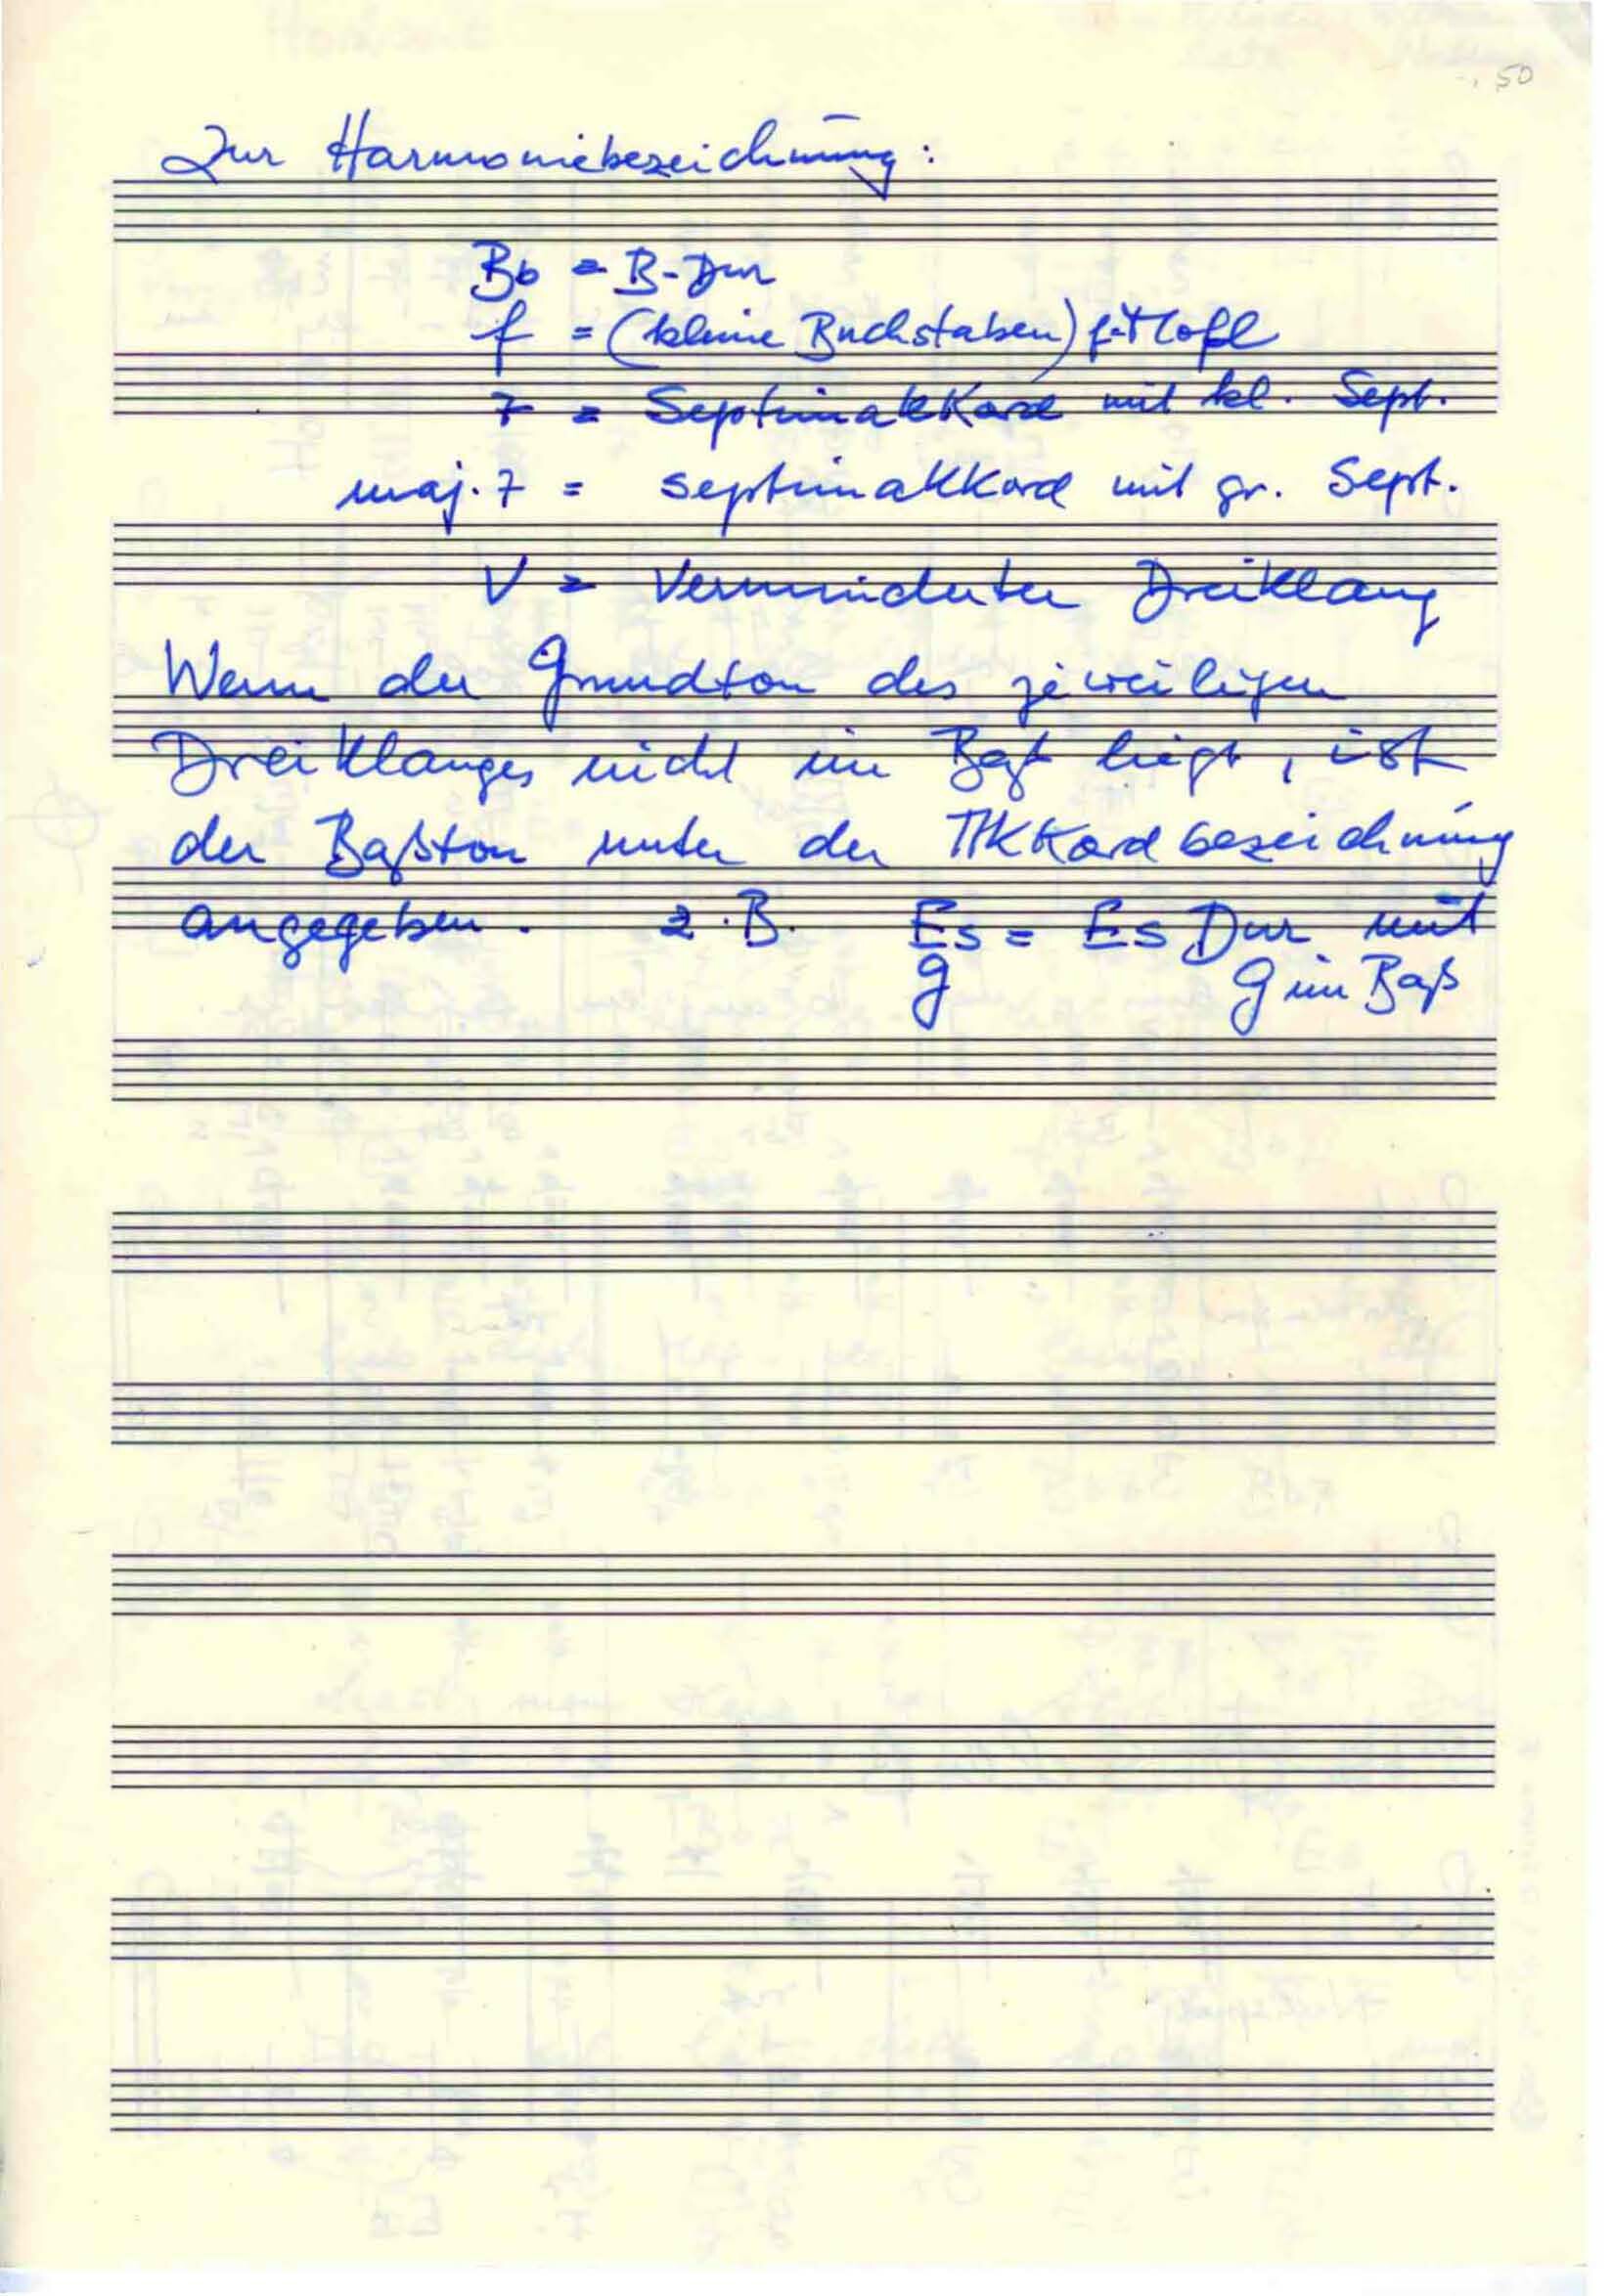 -.50
Zur Harmoniebezeichnung:
Bb = B-Dur
f = (kleine Buchstaben) f-Moll
7 = Septimakkord mit kl. Sept.
maj. 7 = Septimakkord mit gr. Sept.
V = Verminderter Dreiklang
Wenn der Grundton des jeweiligen
Dreiklanges nicht im Baß liegt, ist
der Baßton unter der Akkordbezeichnung
angegeben. z.B. Es = Es Dur mit
g G im Baß